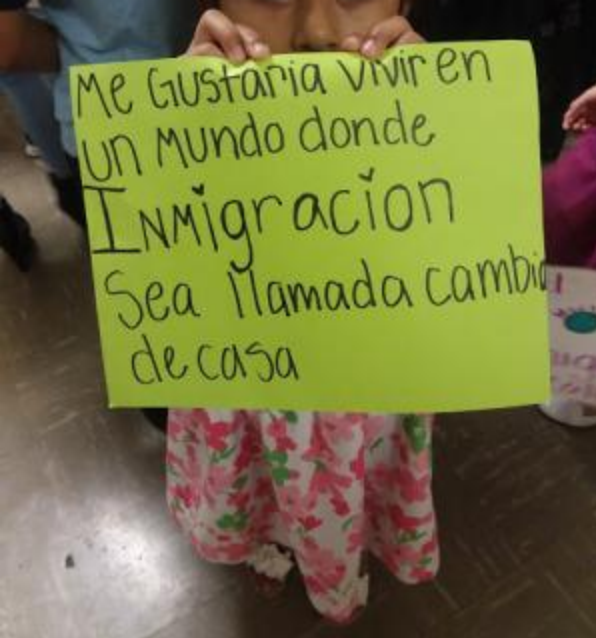 Me Gustaria vivir en
un mundo donde
Inmigracion
Sea llamada cambio
de casa